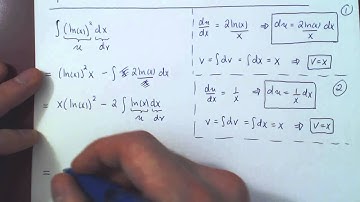 ∫ (ln(x))² dx
u dv
= (ln(x))² x − ∫ x 2ln(x)/x dx
= x(ln(x))² − 2 ∫ ln(x) dx
u dv
=
①
du/dx = 2ln(x)/x ⇒ du = 2ln(x)/x dx
v = ∫dv = ∫dx = x ⇒ v=x
②
du/dx = 1/x ⇒ du = 1/x dx
v = ∫dv = ∫dx = x ⇒ v=x